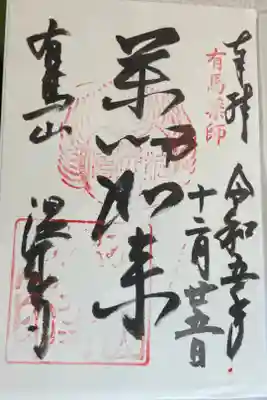 奉拝
有馬
印
令和五年
十二月廿五日
薬師如来
有馬山
温泉寺